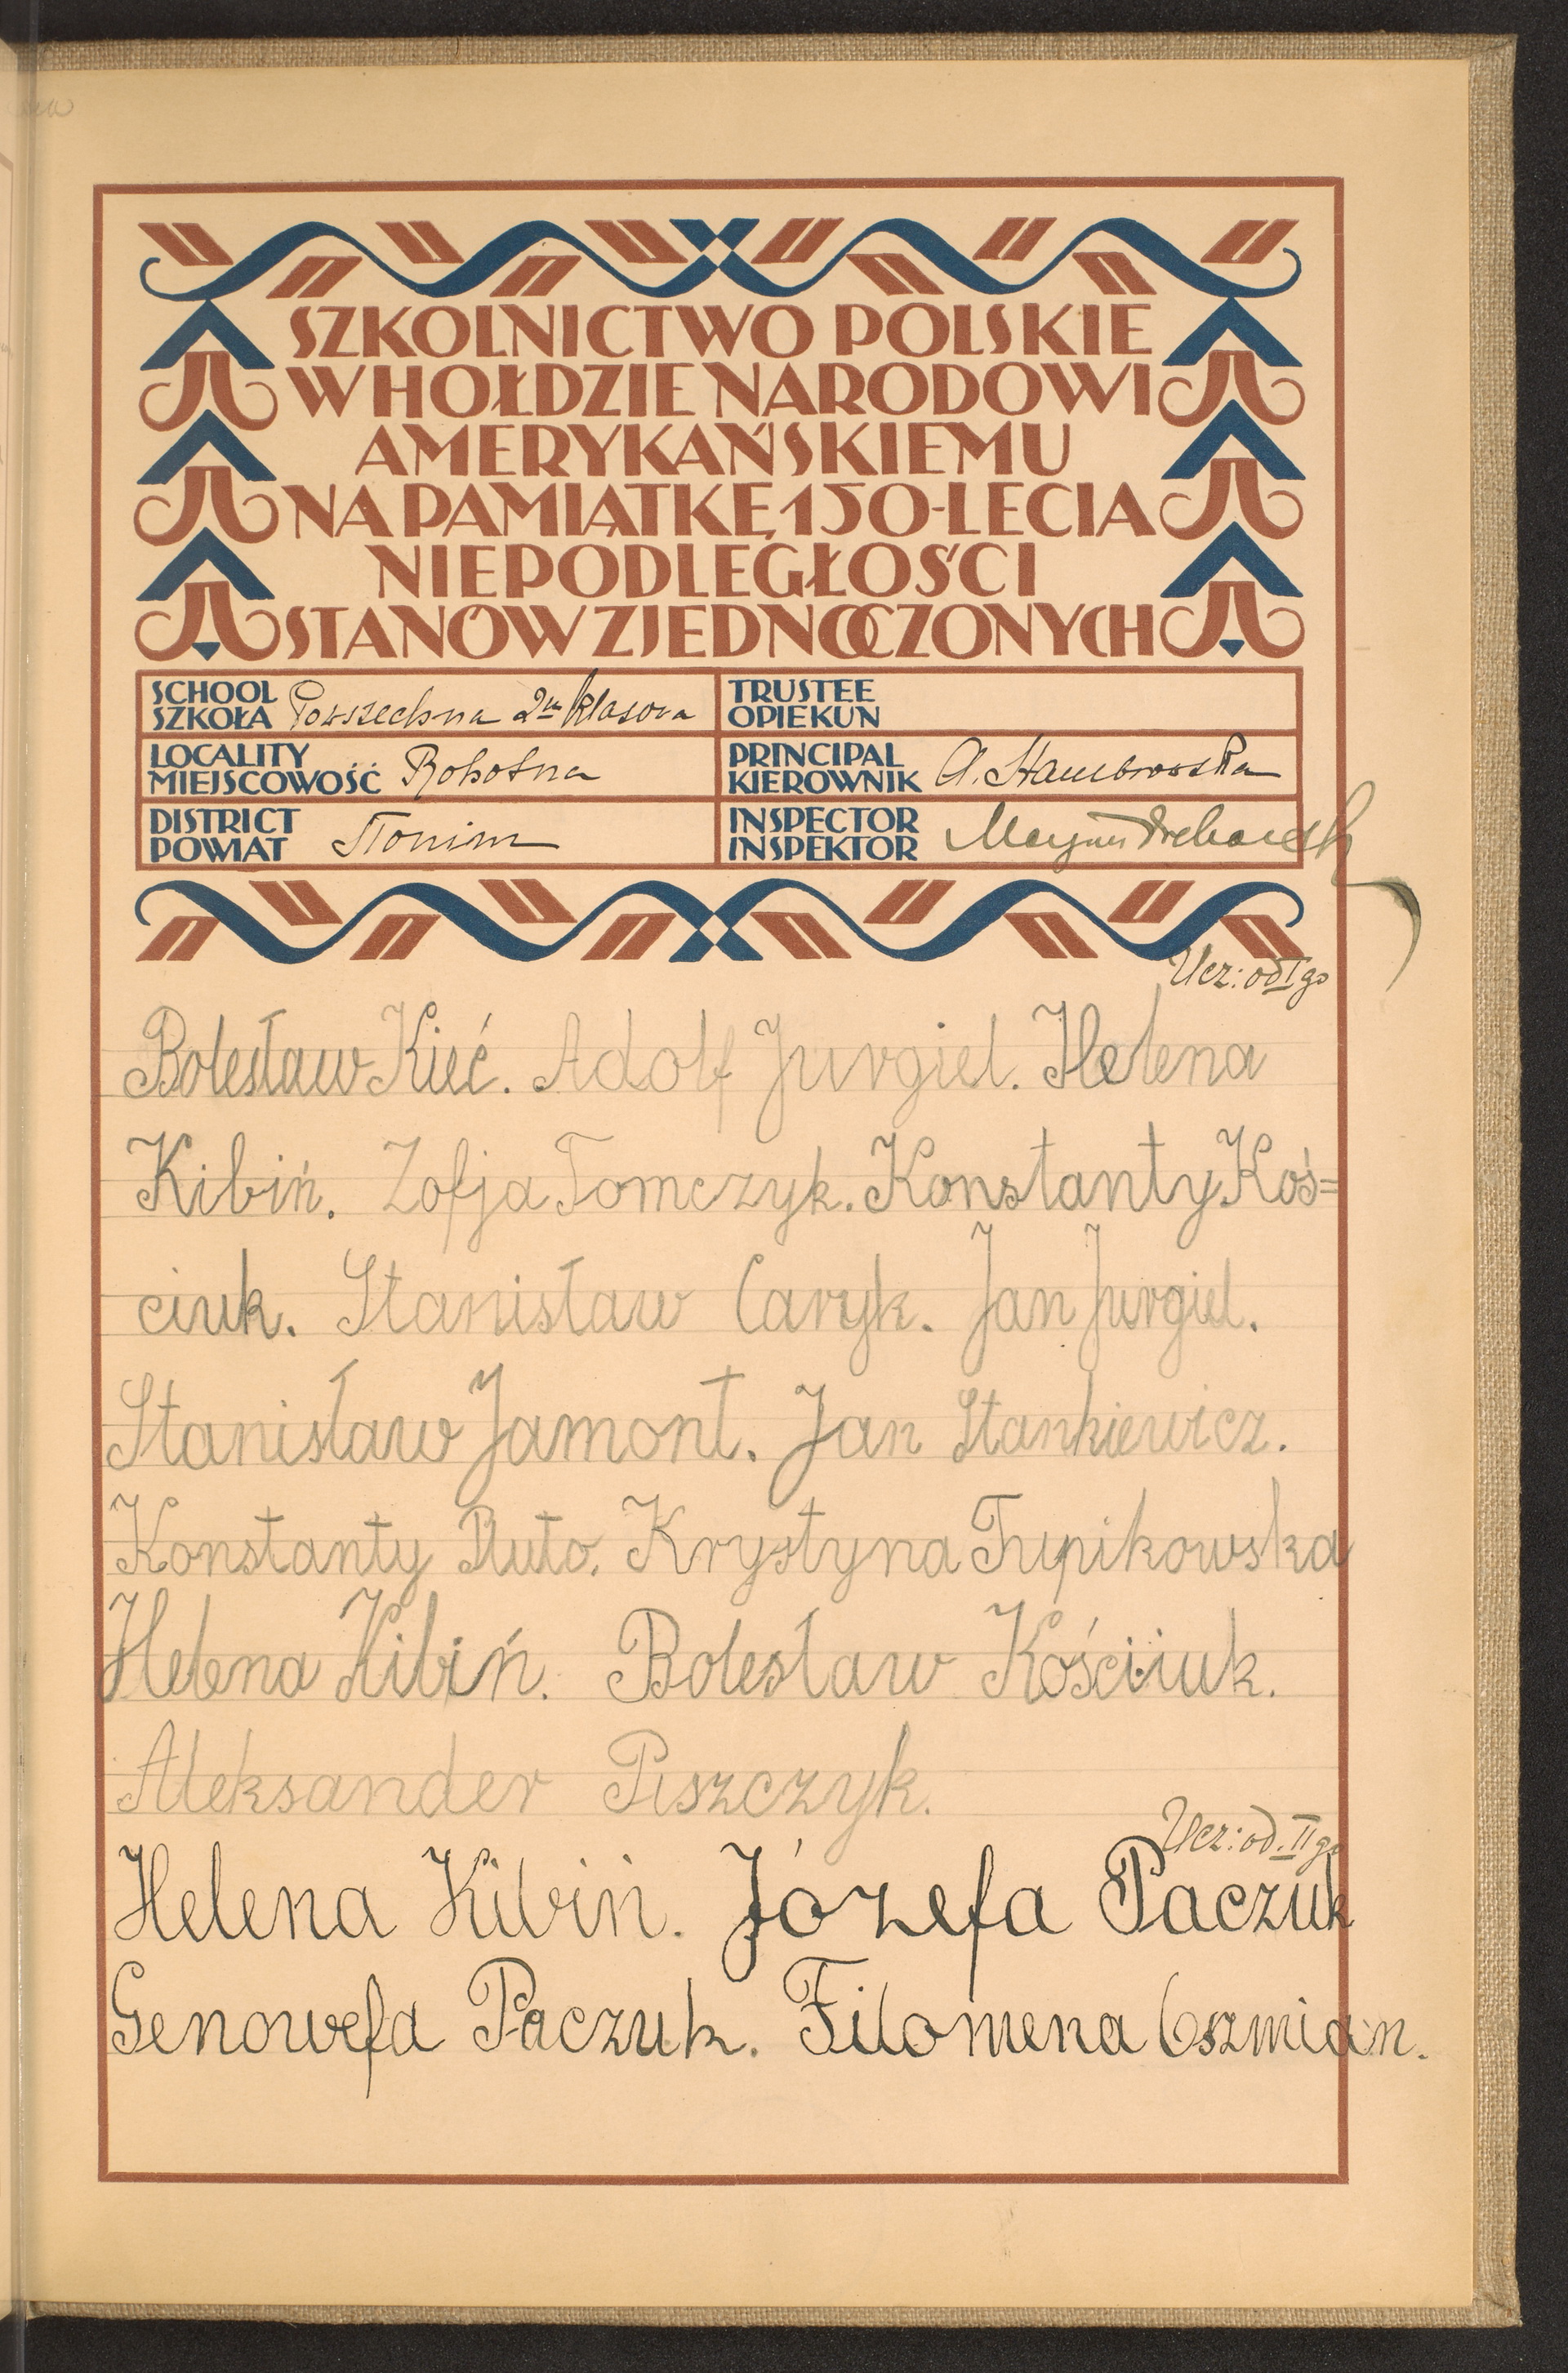 SZKOLNICTWO POLSKIE
W HOŁDZIE NARODOWI
AMERYKAŃSKIEMU
NA PAMIĄTKĘ 150-LECIA
NIEPODLEGŁOŚCI
STANÓW ZJEDNOCZONYCH
SCHOOL
SZKOŁA Powszechna 2 klasowa
TRUSTEE
OPIEKUN
LOCALITY
MIEJSCOWOŚĆ Rohotna
PRINCIPAL
KIEROWNIK A.
DISTRICT
POWIAT Słonim
INSPECTOR
INSPEKTOR
Ucz: od I go
Bolesław Kieć. Adolf Jurgiel. Helena
Kibiń. Zofja Tomczyk. Konstanty Koś=
ciuk. Stanisław Caryk. Jan Jurgiel.
Stanisław Jamont. Jan Stankiewicz.
Konstanty Pluto. Krystyna Trypikowska
Helena Kibiń. Bolesław Kościuk.
Aleksander Piszczyk.
Ucz: od. II go
Helena Kibiń. Józefa Paczuk
Genowefa Paczuk. Filomena Oszmian.